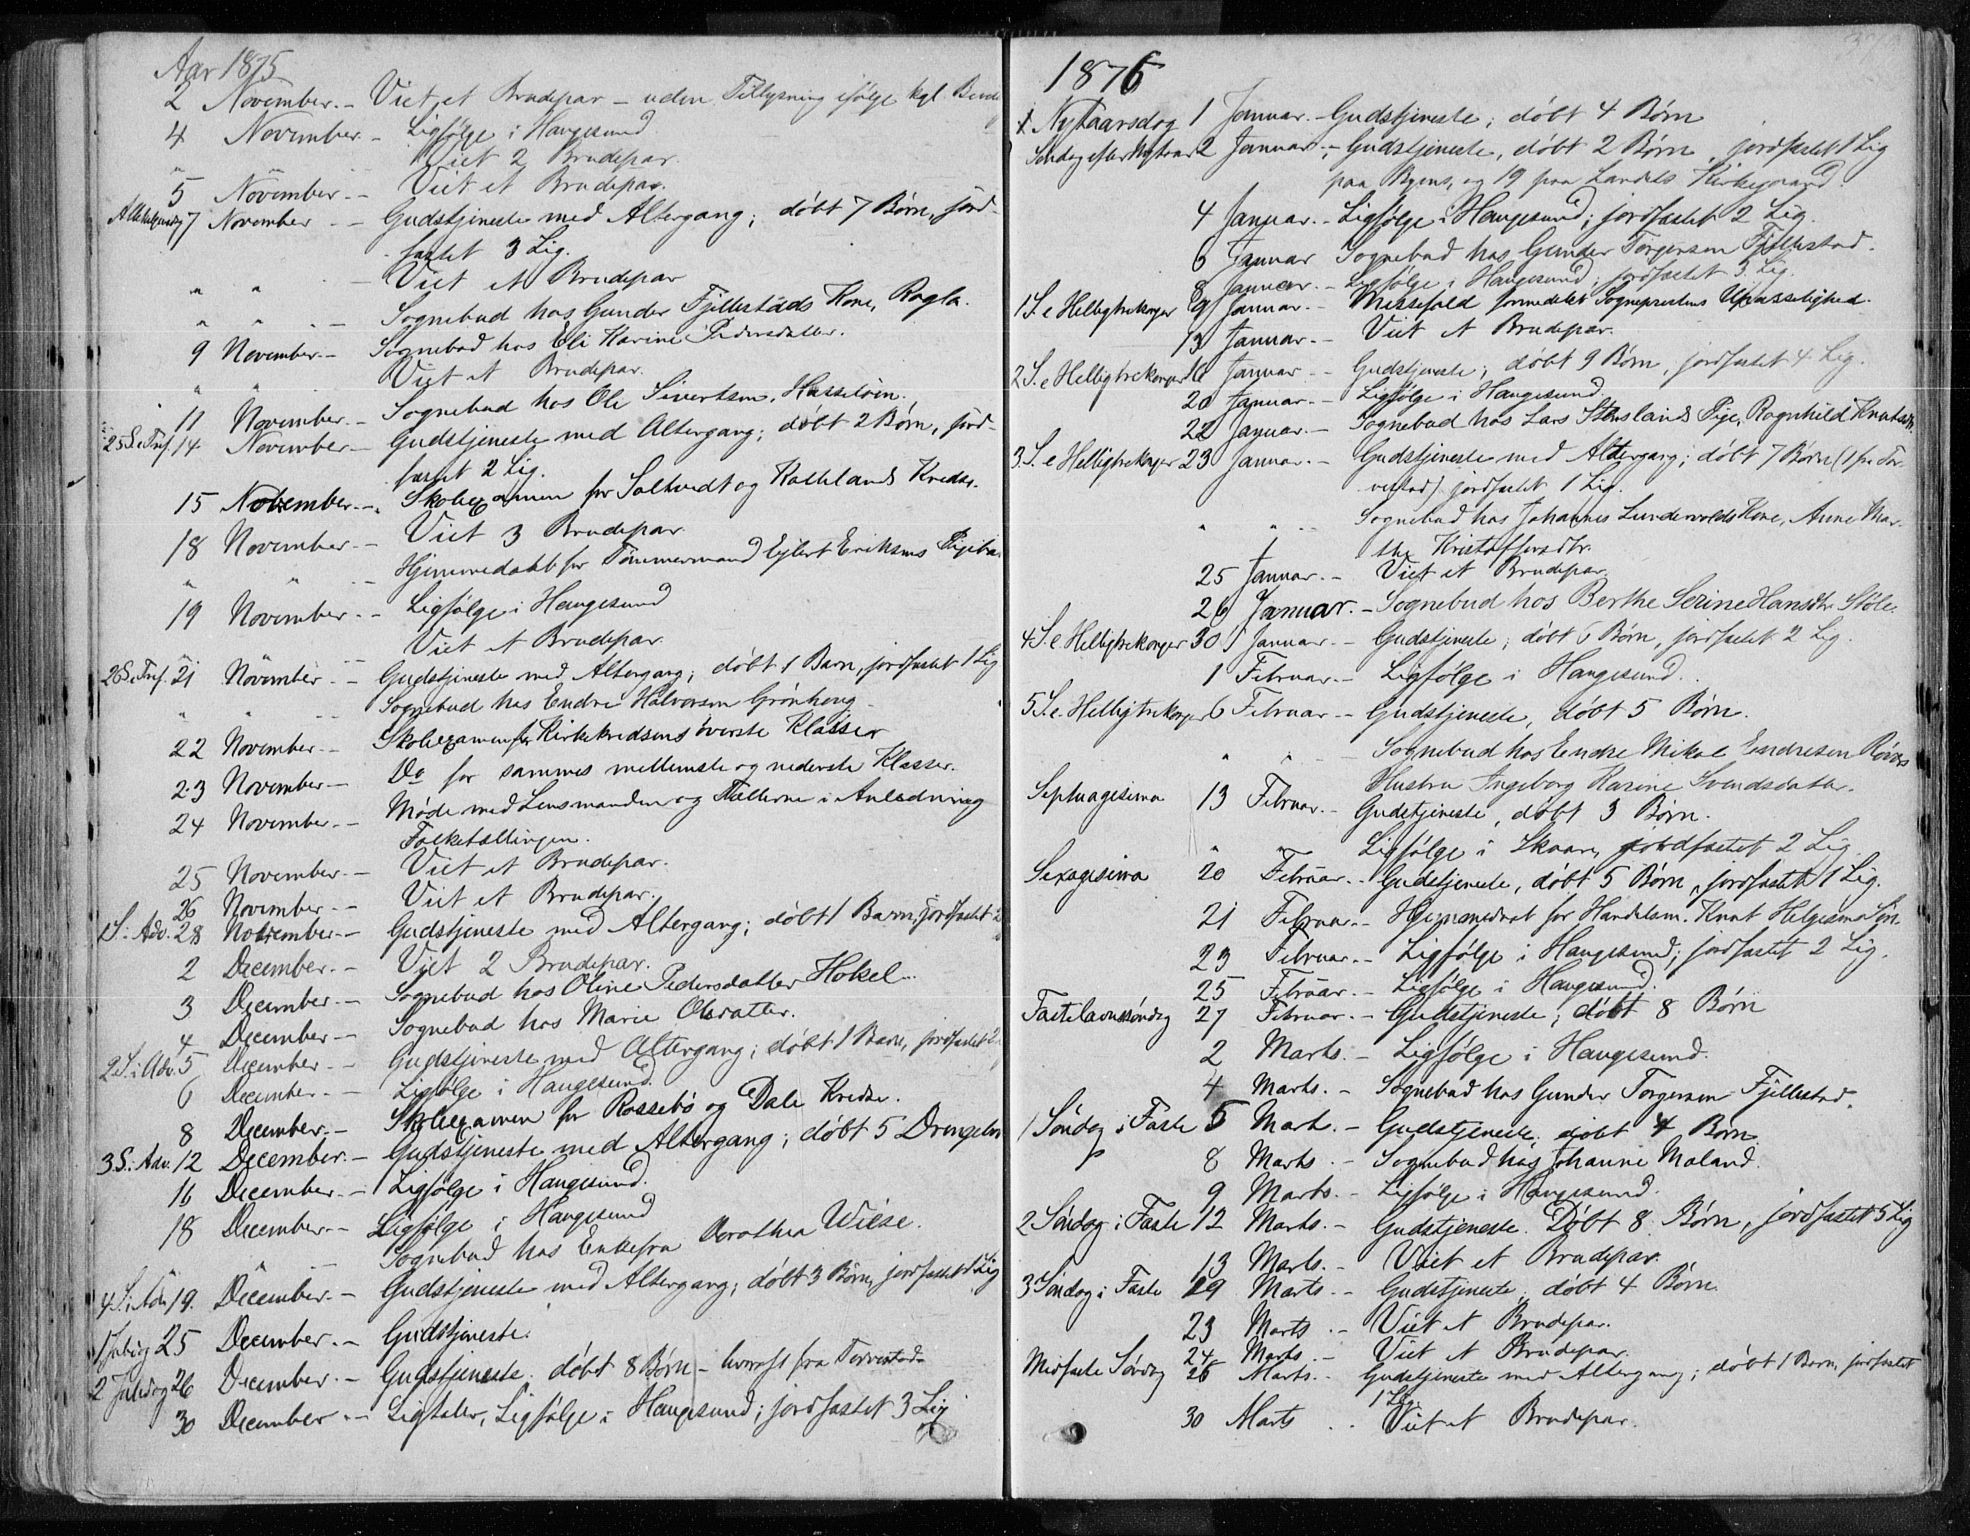 Aar 1875
2 November. - Viet et Brudepar - uden Tillysning ifølge kgl.
4 November - Ligfølge i Haugesund.
" " - Viet 2 Brudepar.
5 November - - Viet et Brudepar.
7 November - - Gudstjeneste med Altergang; døbt 7 Børn, jord-
fæstet 3 Lig.
" " - Viet et Brudepar
" " - - Sognebud hos Gunder Fjellestads Kone, Ragla.
9 November. - Sognebud hos Eli Karine Pedersdatter.
" " Viet et Brudepar.
11 November. - Sognebud hos Ole Sivertsen, Hasseløen.
25 S. e Trif. 14 November - Gudstjeneste med Altergang; døbt 2 Børn, jord-
fæstet 2 Lig.
15 November. - Skolexamen for Saltvedt og Kallelands Kredse.
18 November. - Viet 3 Brudepar
" " - - Hjemmedaab for Tømmermand Ejlert Eriksens
19 November. - Ligfølge i Haugesund
" " - - Viet et Brudepar.
26 S. e Trif. 21 November - - Gudstjeneste med Altergang; døbt 1 Barn, jordfæstet 1 Lig
" " - - Sognebud hos Endre Halvorsen Grønhoug
22 November. - Skolexamen for Kirkekredsens øverste Klasser
23 November - Do for sammes mellemste og nederste Klasser.
24 November. - Møde med Lensmanden og Tællerne i Anledning
Folketællingen.
25 November. - Viet et Brudepar.
26 November - - Viet et Brudepar.
1 S. i Adv. 28 November - Gudstjeneste med Altergang; døbt 1 Barn, jordfæstet 2
2 December. - Viet 2 Brudepar.
3 December. - Sognebud hos Oline Pedersdatter Hokel
4 December. - Sognebud hos Marie Olsdatter.
2 S. i Adv. 5 December. - Gudstjeneste med Altergang; døbt 1 Barn, jordfæstet 2
6 December. - Ligfølge i Haugesund.
8 December. - Skolexamen for Rossebø og Dale Kredse.
3 S. i Adv. 12 December. - Gudstjeneste med Altergang; døbt 5 Drengebørn
16 December. - Ligfølge i Haugesund.
18 December. - Ligfølge i Haugesund
" " - Sognebud hos Enkefru Dorothea Wiese.
4 S. i Adv. 19. December. - Gudstjeneste med Altergang; døbt 3 Børn, jordfæstet 1 Lig
1 Juledag 25 December. - Gudstjeneste.
2 Juledag 26 December. - Gudstjeneste døbt 8 Børn - hvoraf 1 fra Torvestad
30 December. - Ligtaler, Ligfølge i Haugesund; jordfæstet 3 Lig
1876
Nytaarsdag 1 Januar. - Gudstjeneste; døbt 4 Børn
Søndag efter Nytaar 2 Januar. - Gudstjeneste, døbt 2 Børn, jordfæstet 1 Lig
paa Byens, og 19 paa Landets Kirkegaard.
4 Januar. - Ligfølge i Haugesund; jordfæstet 2 Lig.
6 Januar Sognebud hos Gunder Torgersen Fjellestad.
8 Januar. - Ligfølge i Haugesund; jordfæstet 3 Lig.
1 S. e Helligtrekonger 9 Januar. - Messefald formedelst Sogneprestens Upasselighed.
13 Januar. - Viet et Brudepar.
2 S. e Helligtrekonger 16 Januar - Gudstjeneste; døbt 9 Børn, jordfæstet 4 Lig.
20 Januar. - Ligfølge i Haugesund
22 Januar. - Sognebud hos Lars Stenslands Pige, Ragnhild Knutsdtr.
3 S. e Helligtrekonger 23 Januar. - Gudstjeneste med Altergang; døbt 7 Børn (1 fra Tor-
vestad) jordfæstet 1 Lig.
" " - Sognebud hos Johannes Lundervolds Kone, Anne Mar-
the Kristoffersdtr.
25 Januar. - Viet et Brudepar.
26 Januar. - Sognebud hos Berthe Serine Hansdtr. Støle.
4 S. e Helligtrekonger 30 Januar. - Gudstjeneste; døbt 6 Børn, jordfæstet 2 Lig.
1 Februar. - Ligfølge i Haugesund.
5 S. e. Helligtrekonger 6 Februar - - Gudstjeneste, døbt 5 Børn.
" " - Sognebud hos Endre Mikal Endresen
Hustru Ingeborg Karine Svendsdatter.
Septuagesima 13 Februar. - Gudstjeneste, døbt 3 Børn.
" " Ligfølge i Skaare, jordfæstet 2 Lig.
Sexagesima 20 Februar. - Gudstjeneste, døbt 5 Børn, jordfæstet 1 Lig.
21 Februar. - Hjemmedaab for Handelsm. Knut Helgesens Søn.
23 Februar. - Ligfølge i Haugesund; jordfæstet 2 Lig.
25 Februar. - Ligfølge i Haugesund.
Fastelavnssøndag 27 Februar. - Gudstjeneste; døbt 8 Børn
2 Marts. - Ligfølge i Haugesund.
4 Marts. - Sognebud hos Gunder Torgersen Fjellestad.
1 Søndag i Faste 5 Marts. - Gudstjeneste, døbt 4 Børn
8 Marts. - Sognebud hos Johanne Moland.
9 Marts. - Ligfølge i Haugesund.
2 Søndag i Faste 12 Marts. - Gudstjeneste. Døbt 8 Børn, jordfæstet 5 Lig
13 Marts. - Viet et Brudepar.
3 Søndag i Faste 19 Marts. - Gudstjeneste, døbt 4 Børn.
23 Marts. - Viet et Brudepar.
24 Marts. - Viet et Brudepar.
Midfaste Søndag 26 Marts. - Gudstjeneste med Altergang; døbt 1 Barn, jordfæstet
1 Lig.
30 Marts . . Viet et Brudepar.